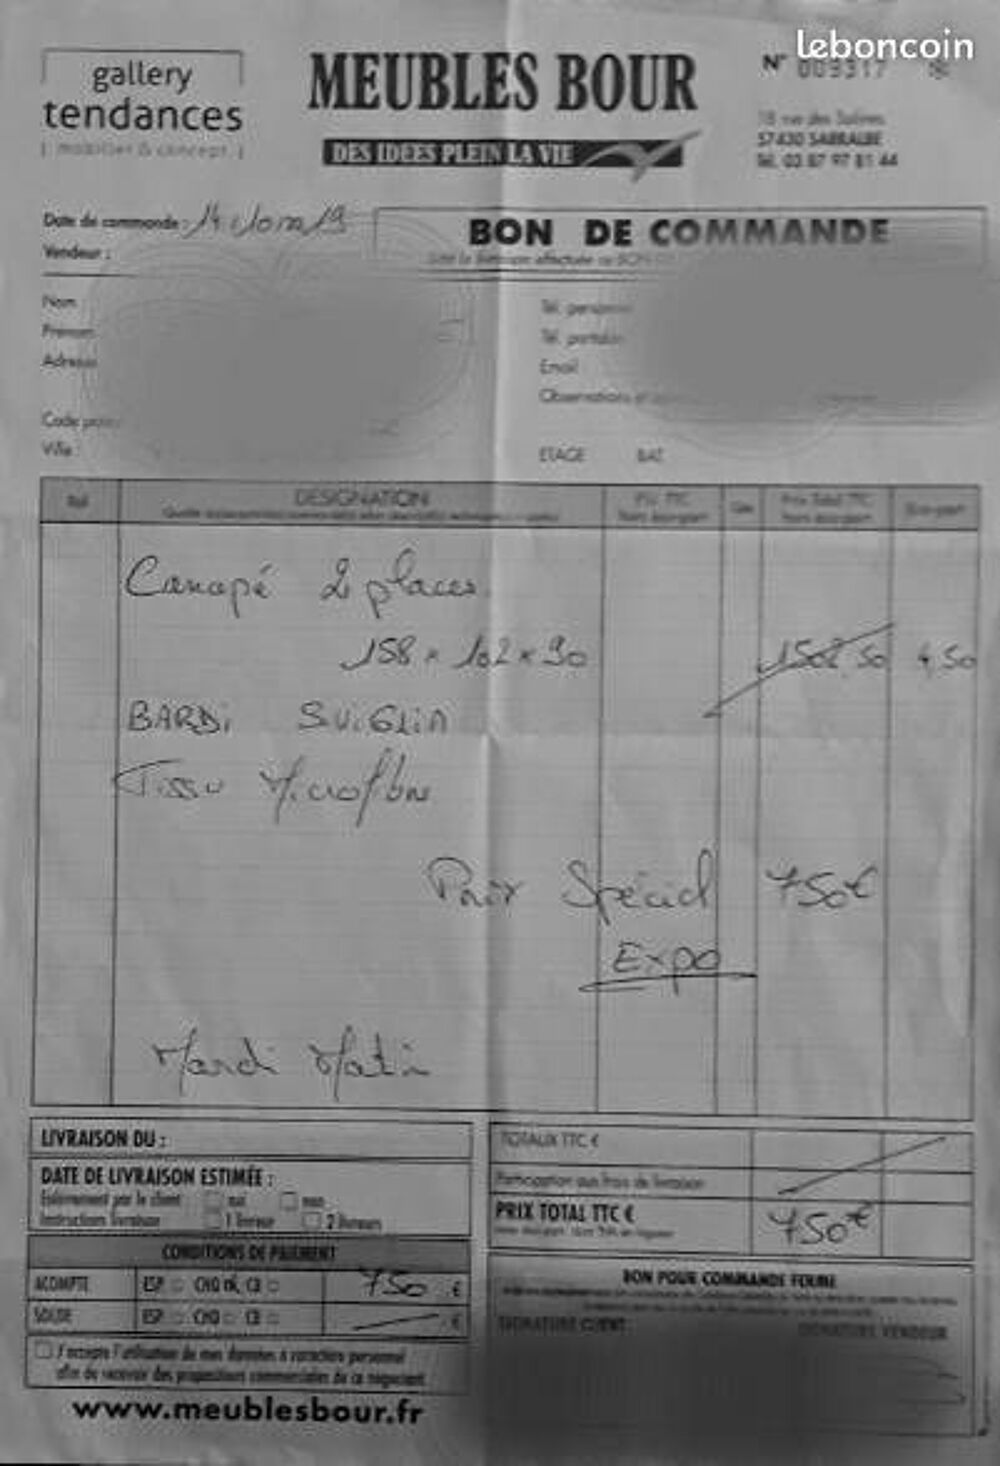 leboncoin
gallery
tendances
[ mobilier & concept ]
MEUBLES BOUR
DES IDEES PLEIN LA VIE
N° 009317
18 rue des Salines
57430 SARRALBE
Tél. 03 87 97 81 44
Date de commande : 14
19
Vendeur :
BON DE COMMANDE
Nom
Prénom
Adresse
Code postal
Ville :
Tél. personnel
Tél. portable
Email
Observations
ETAGE BAT
Réf DESIGNATION P.U. TTC Qté Prix Total TTC Eco-part
hors éco-part hors éco-part
Canapé 2 places
158 x 102 x 90 1502,50 4,50
BARDI
Tissu Microfibre
Prix Spécial 750€
Expo
Mardi Matin
LIVRAISON DU :
DATE DE LIVRAISON ESTIMÉE :
Enlèvement par le client oui non
Instructions livraison 1 livreur 2 livreurs
TOTAUX TTC €
Participation aux frais de livraison
PRIX TOTAL TTC € 750€
CONDITIONS DE PAIEMENT
ACOMPTE ESP CHQ CB 750 €
SOLDE ESP CHQ CB €
J'accepte l'utilisation de mes données à caractère personnel
afin de recevoir des propositions commerciales de ce négociant
www.meublesbour.fr
BON POUR COMMANDE FERME
SIGNATURE CLIENT SIGNATURE VENDEUR